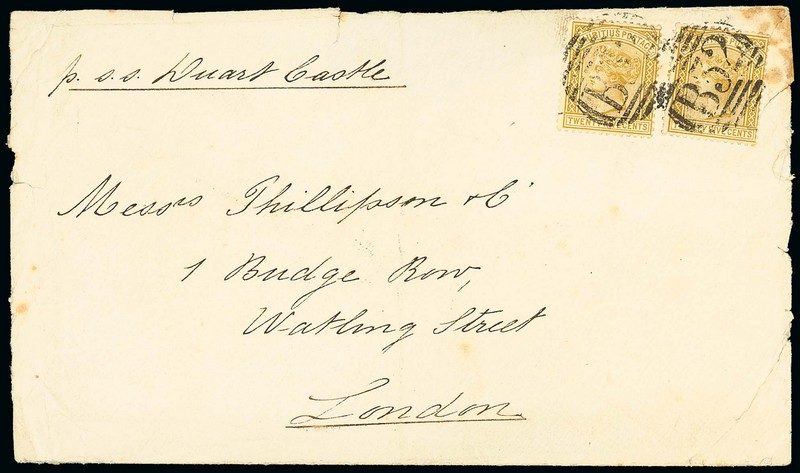 p. s.s. Duart Castle
MAURITIUS POSTAGE
TWENTY FIVE CENTS
B
B53
CENTS
Messrs Phillipson & Co
1 Budge Row,
Watling Street
London